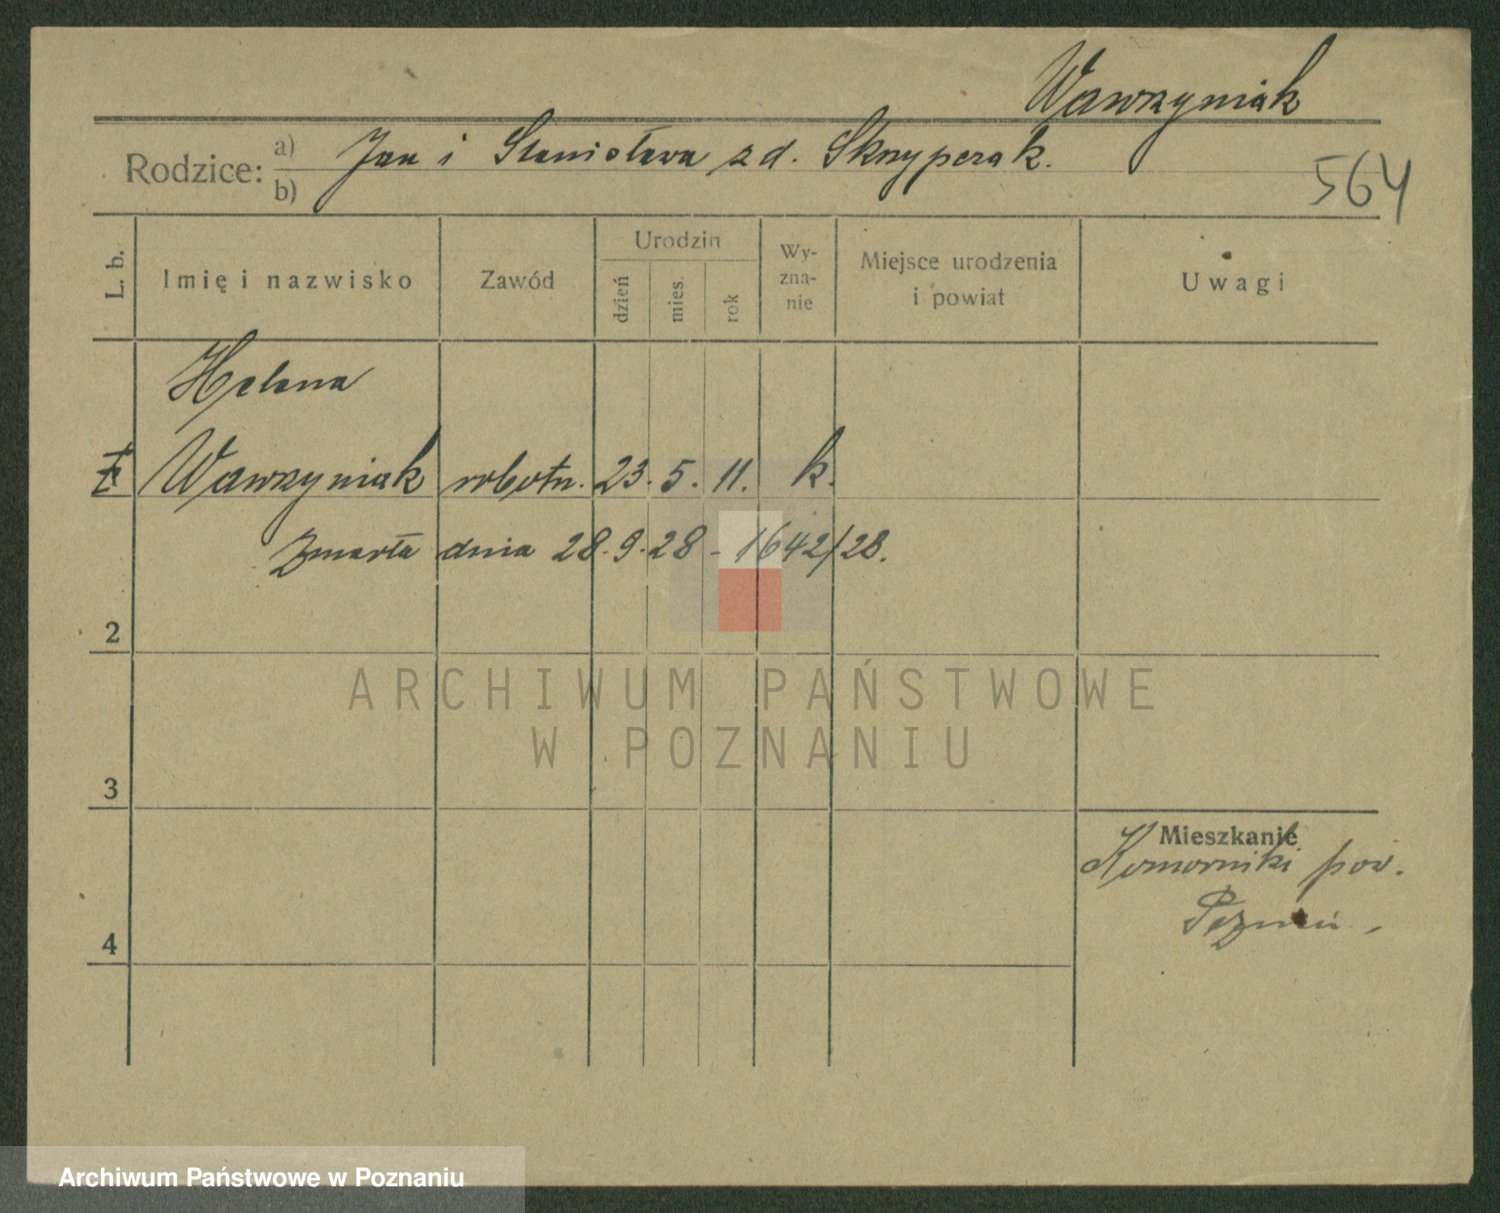 Wawrzyniak
Rodzice: a) Jan i Stanisława z d. Skrzyperak.
b)
564
L. b. Imię i nazwisko Zawód Urodzin dzień mies. rok Wy-zna-nie Miejsce urodzenia i powiat Uwagi
Helena
Wawrzyniak robotn. 23. 5. 11. k.
Zmarła dnia 28. 9. 28 - 1642/28.
2
ARCHIWUM PAŃSTWOWE
W POZNANIU
3
Mieszkanie
Komorniki pow.
Poznań
4
Archiwum Państwowe w Poznaniu